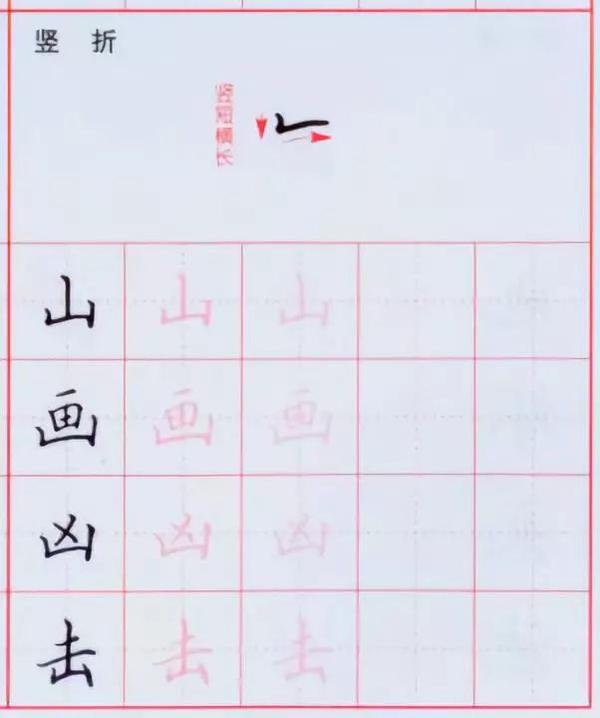 竖 折
竖短横长
山 山 山
画 画 画
凶 凶 凶
击 击 击